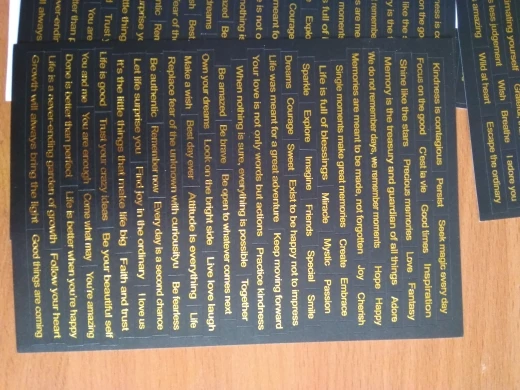 Kindness is contagious Persist Seek magic every day
Focus on the good C'est la vie Good times Inspiration
Shine like the stars Precious memories Love Fantasy
Memory is the treasury and guardian of all things Adore
We do not remember days, we remember moments Hope Happy
Memories are meant to be made, not forgotten Joy Cherish
Single moments make great memories Create Embrace
Life is full of blessings Miracle Mystic Passion
Sparkle Explore Imagine Friends Special Smile
Dreams Courage Sweet Exist to be happy not to impress
Life was meant for a great adventure Keep moving forward
Your love is not only words but actions Practice kindness
When nothing is sure, everything is possible Together
Be amazed Be brave Be open to whatever comes next
Own your dreams Look on the bright side Live love laugh
Make a wish Best day ever Attitude is everything Life
Replace fear of the unknown with curiousityu Be fearless
Be authentic Remember now Every day is a second chance
Let life surprise you Find joy in the ordinary I love us
It's the little things that make life big Faith and trust
Life is good Trust your crazy ideas Be your beautiful self
You and me You are enough Come what may You're amazing
Done is better than perfect Life is better when you're happy
Life is a never-ending garden of growth Follow your heart
Growth will always bring the light Good things are coming
less judgement Grateful
Wish Breathe I adore you
Wild at heart Escape the ordinary